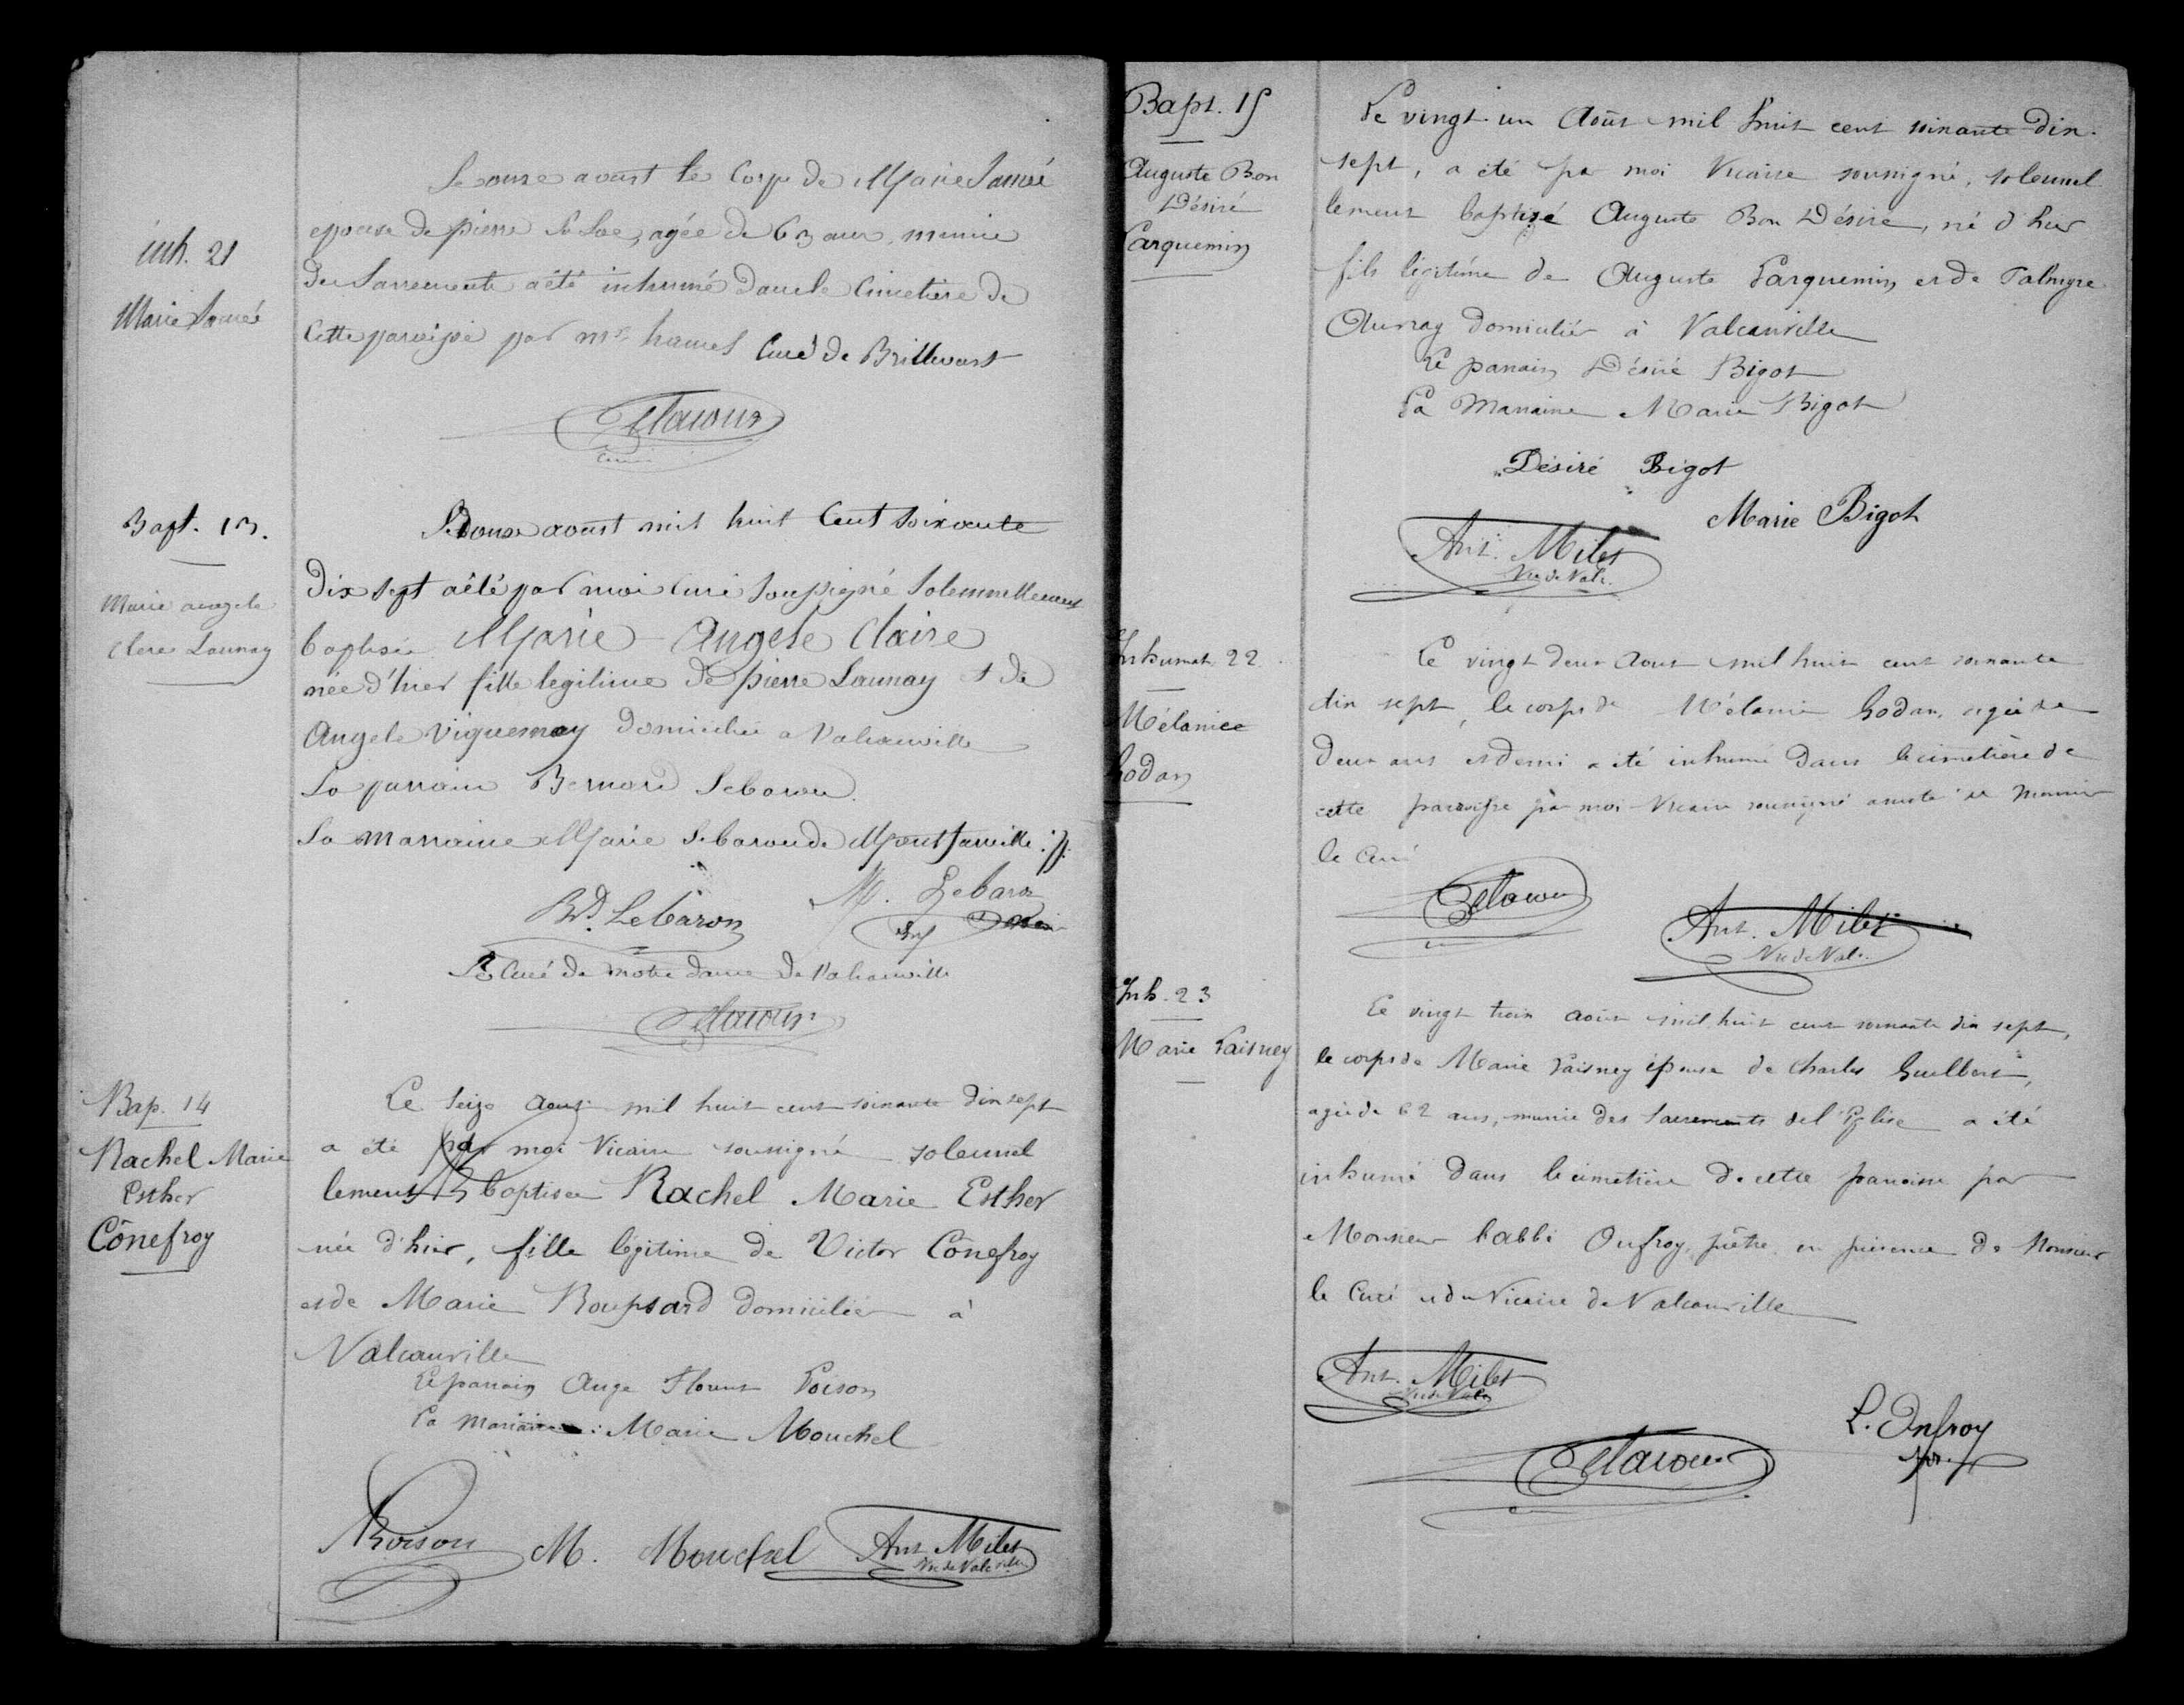 inh. 21
Marie
Le onze aoust le Corps de Marie
épouse de pierre agée de 63 ans, munie
des Sacrements a été inhumé dans le Cimetiere de
Cette paroisse par mr hamel Curé de Brillevast
Delacour
Curé
Bapt. 13.
Marie angele
Clere Launay
Le Douze aoust mil huit Cent soixante
Dix sept a été par moi Curé soussigné Solemnellement
baptisée Marie Angele Claire
née d'hier fille legitime de pierre Launay et de
Angele Viguenay Domiciliés a Valcanville
Le parrain Bernard Lebaron.
La marraine Marie Lebaron de Montfarville
Bd. Lebaron M. Lebaron
Le Curé de Notre dame de Valcanville
Delacour
Bap. 14
Rachel Marie
Esther
Cônefroy
Le seize Aout mil huit cent soixante dix sept
a été par moi Vicaire soussigné solennel
lement baptisée Rachel Marie Esther
née d'hier, fille légitime de Victor Cônefroy
et de Marie Roupsard domiciliés à
Valcanville
Le parrain Auge Florent Poison
La Marraine : Marie Mouchel
Poison M. Mouchel Ant. Milet
Vic de Valc.
Bapt. 15
Auguste Bon
Désiré
Parquemin
Le vingt-un Août mil huit cent soixante dix-
sept, a été par moi Vicaire soussigné, solennel
lement baptisé Auguste Bon Désiré, né d'hier
fils légitime de Auguste Parquemin et de Palmyre
Aunay domiciliés à Valcanville
Le parrain Désiré Bigot
La Marraine Marie Bigot
Désiré Bigot
Marie Bigot
Ant. Milet
Vic de Valc.
Inhumat. 22
Mélanie
Godan
Le vingt deux Aout mil huit cent soixante
dix sept, le corps de Mélanie Godan, agée de
deux ans et demi a été inhumé dans le cimetière de
cette paroisse par moi Vicaire soussigné assisté de Monsieur
le Curé
Delacour
Ant. Milet
Vic de Valc.
Inh. 23
Marie Paisney
Le vingt trois août mil huit cent soixante dix sept,
le corps de Marie Paisney épouse de Charles Guilbert,
agée de 62 ans, munie des Sacrements de l'Eglise a été
inhumé dans le cimetière de cette paroisse par
Monsieur l'abbé Onfroy, prêtre, en présence de Monsieur
le Curé et du Vicaire de Valcanville
Ant. Milet
Vic de Valc.
L. Onfroy
ptre
Delacour